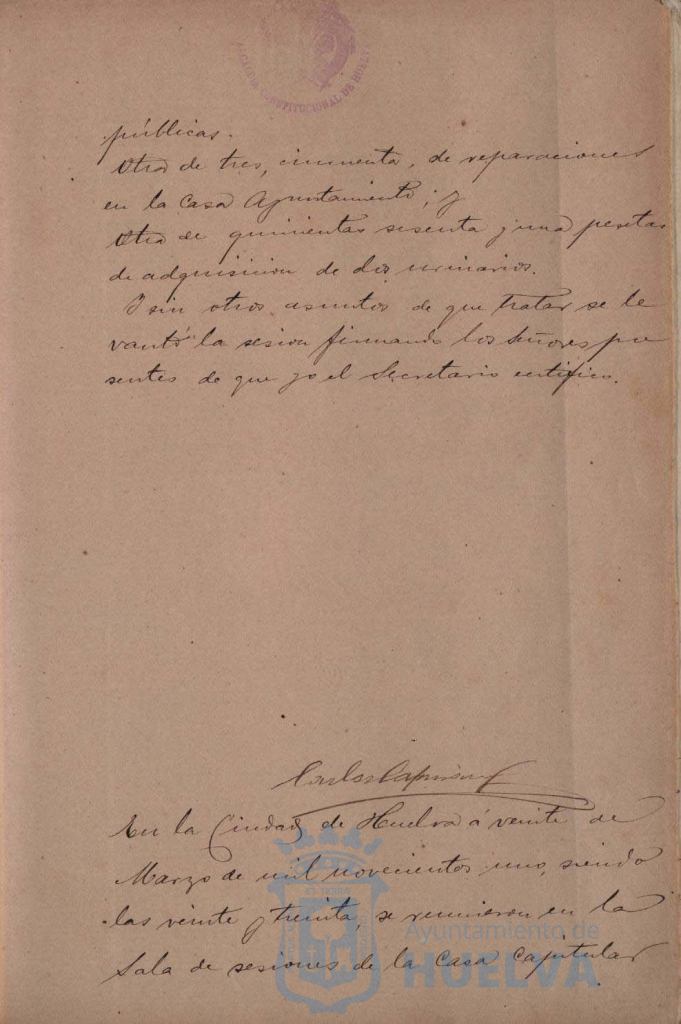 ALCALDIA CONSTITUCIONAL DE HUELVA
públicas.
Otra de tres, cincuenta, de reparaciones
en la Casa Ayuntamiento; y
Otra de quinientas sesenta y una pesetas
de adquisicion de dos urinarios.
Y sin otros asuntos de que tratar se le
vantó la sesion firmando los Señores pre
sentes de que yo el Secretario certifico.
Carlos
En la Ciudad de Huelva á veinte de
Marzo de mil novecientos uno, siendo
las veinte y treinta, se reunieron en la
Sala de sesiones de la Casa Capitular
Ayuntamiento de
HUELVA